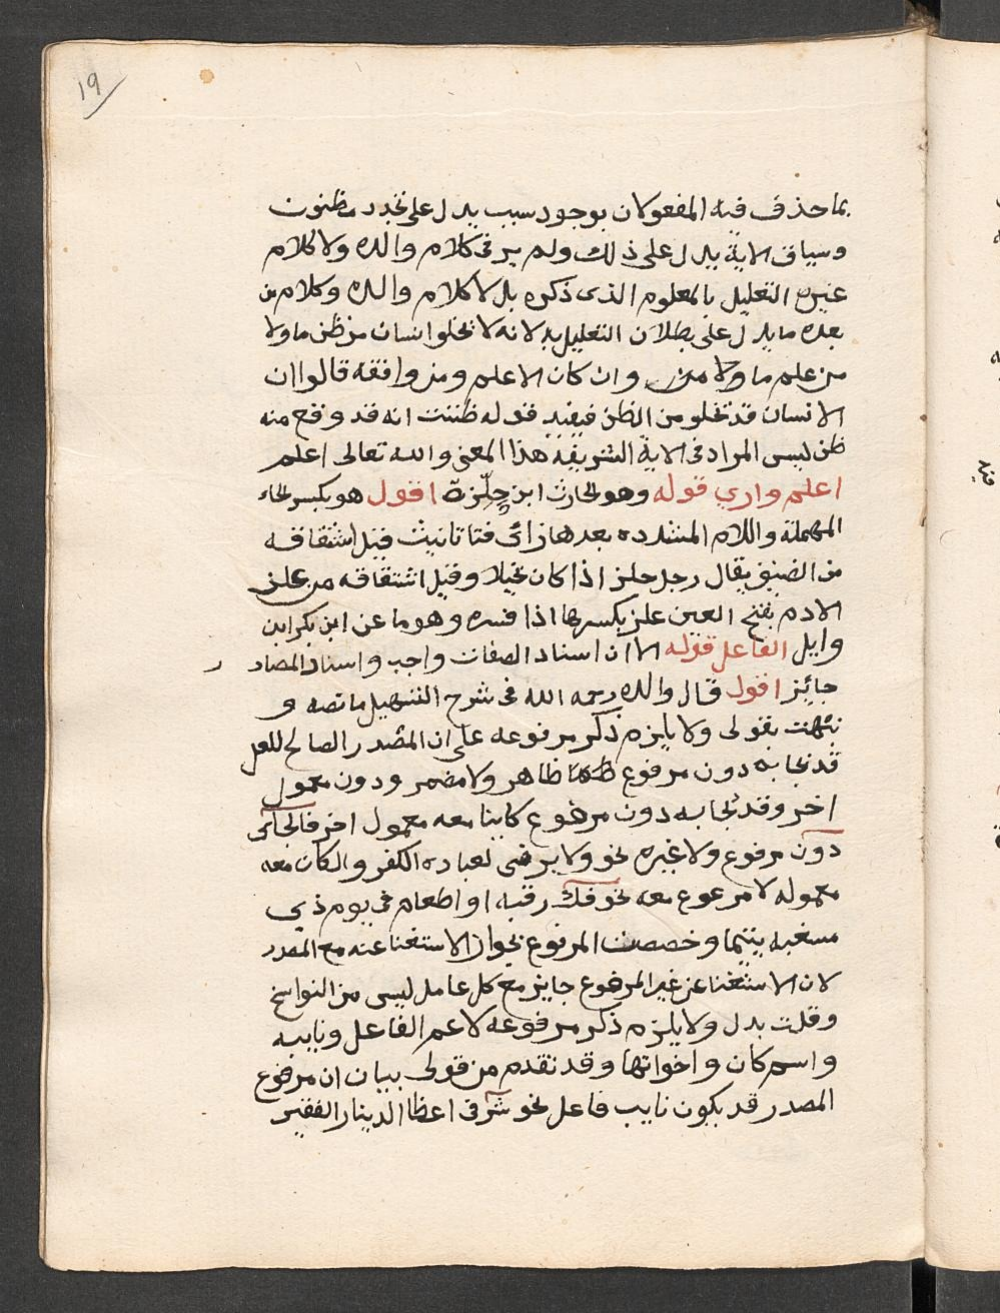 ١٩
بما حذف فيه المفعولان بوجود سبب يدل على تجدد مظنون
وسياق الاية يدل على ذلك ولم ير فى كلام والده ولا كلام
غيره التعليل بالمعلوم الذى ذكره بل لا كلام والده وكلام من
بعده ما يدل على بطلان التعليل به لانه لا يخلوا نسان من ظن ما ولا
من علم ما ولا من وان كان الاعلم ومن وافقه قالوا ان
الانسان قد يخلو من الظن فيفيد قوله ظننت انه قد وقع منه
ظن ليس المراد فى الاية الشريفة هذا المعنى والله تعالى اعلم
اعلم واري قوله وهو الحارث ابن حِلِّزة اقول هو بكسر الحاء
المهملة واللام المشدده بعدها زاى فتا تانيث قيل اشتقاقه
من الضيق يقال رجل حلز اذا كان بخيلا وقيل اشتقاقه من علز
الادم بفتح العين علز بكسرها اذا فسره وهو ما عن ابن بكر ابن
وايل الفاعل قوله الا ان اسناد الصفات واجب واسناد المصاد ر
جائز اقول قال والده رحمه الله فى شرح التسهيل ما نصه و
نبهت بقولى ولا يلزم ذكر مرفوعه على ان المصدر الصالح للعمل
قد يجا به دون مرفوع ظاهر ولا مضمر ودون معمول
اخر وقد يجا به دون مرفوع كاينا معه معمول اخر فالجاى
دون مرفوع ولا غيره نحو ولا يرضى لعباده الكفر والكان معه
معموله لا مرعوع معه نحو فك رقبه او اطعام فى يوم ذي
مسغبه يتيما وخصصت المرفوع بجواز الاستغنا عنه مع المصدر
لان الاستغنا عن غير المرفوع جايز مع كل عامل ليس من النواسخ
وقلت بدل ولا يلزم ذكر مرفوعه لاعم الفاعل ونايبه
واسم كان واخواتها وقد تقدم من قولى بيان ان مرفوع
المصدر قد يكون نايب فاعل نحو شرفى اعطا الدينار الفقير